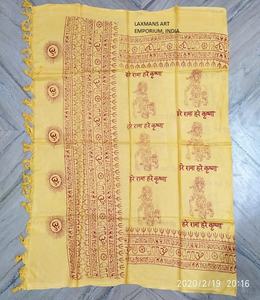 LAXMANS ART
EMPORIUM, INDIA
ॐ
ॐ
ॐ
ॐ
ॐ
हरे रामा हरे कृष्णा
हरे रामा हरे कृष्णा
हरे रामा हरे कृष्णा
हरे रामा हरे कृष्णा
2020/2/19 20:16